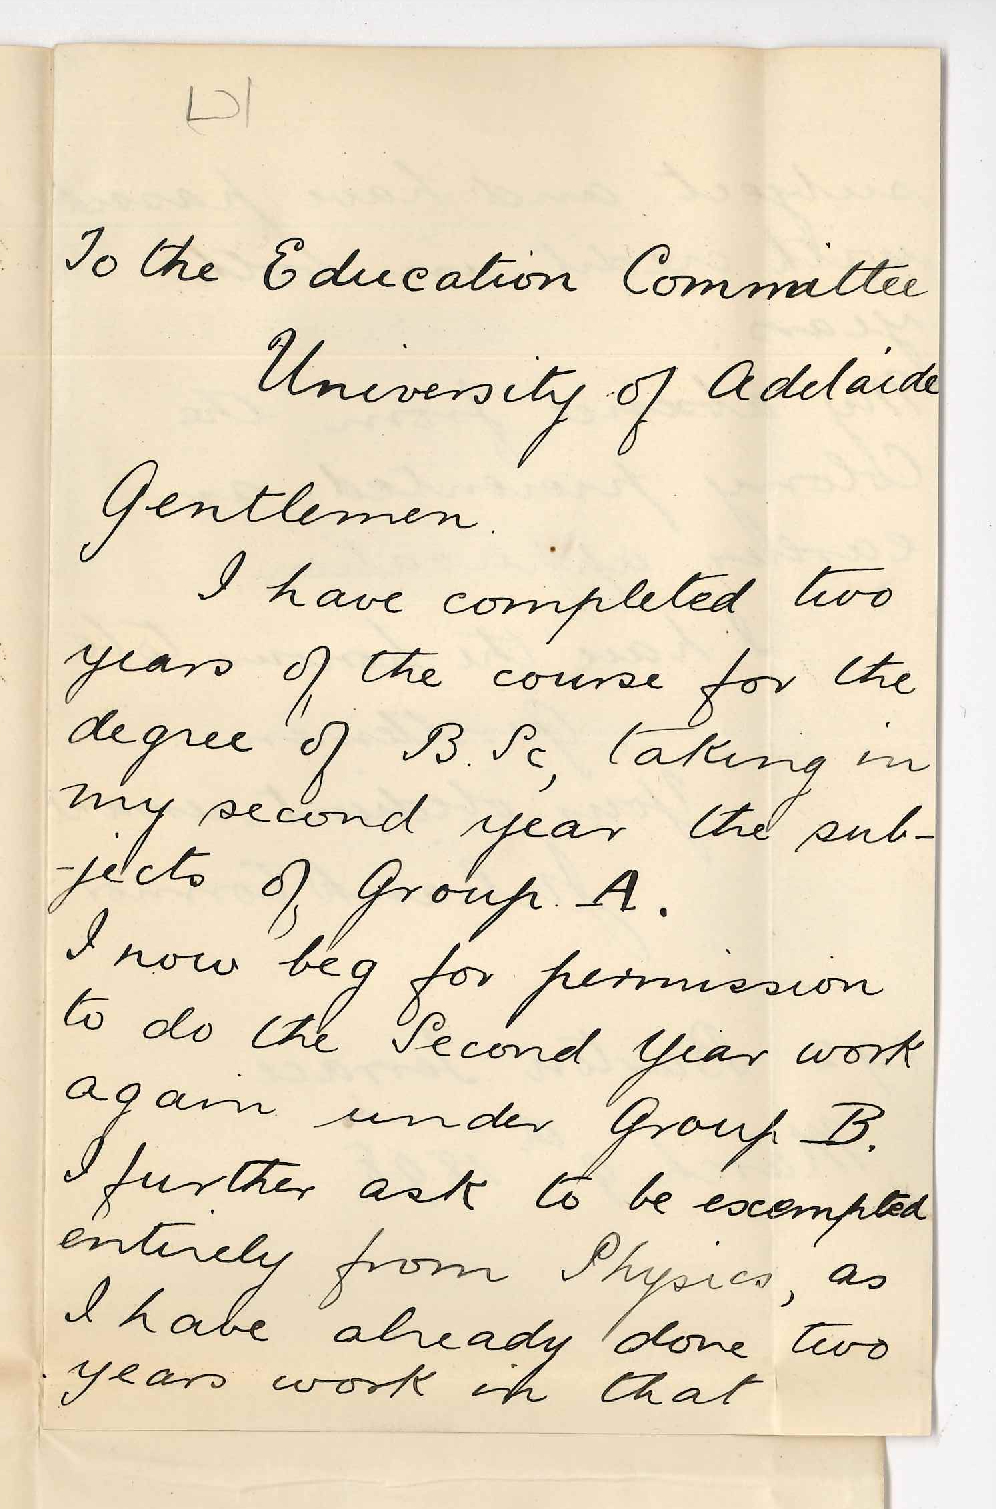 To the Education Committee
University of Adelaide
Gentlemen.
I have completed two
years of the course for the
degree of B.Sc, taking in
my second year the sub-
-jects of Group A.
I now beg for permission
to do the Second Year work
again under Group B.
I further ask to be exempted
entirely from Physics, as
I have already done two
years work in that